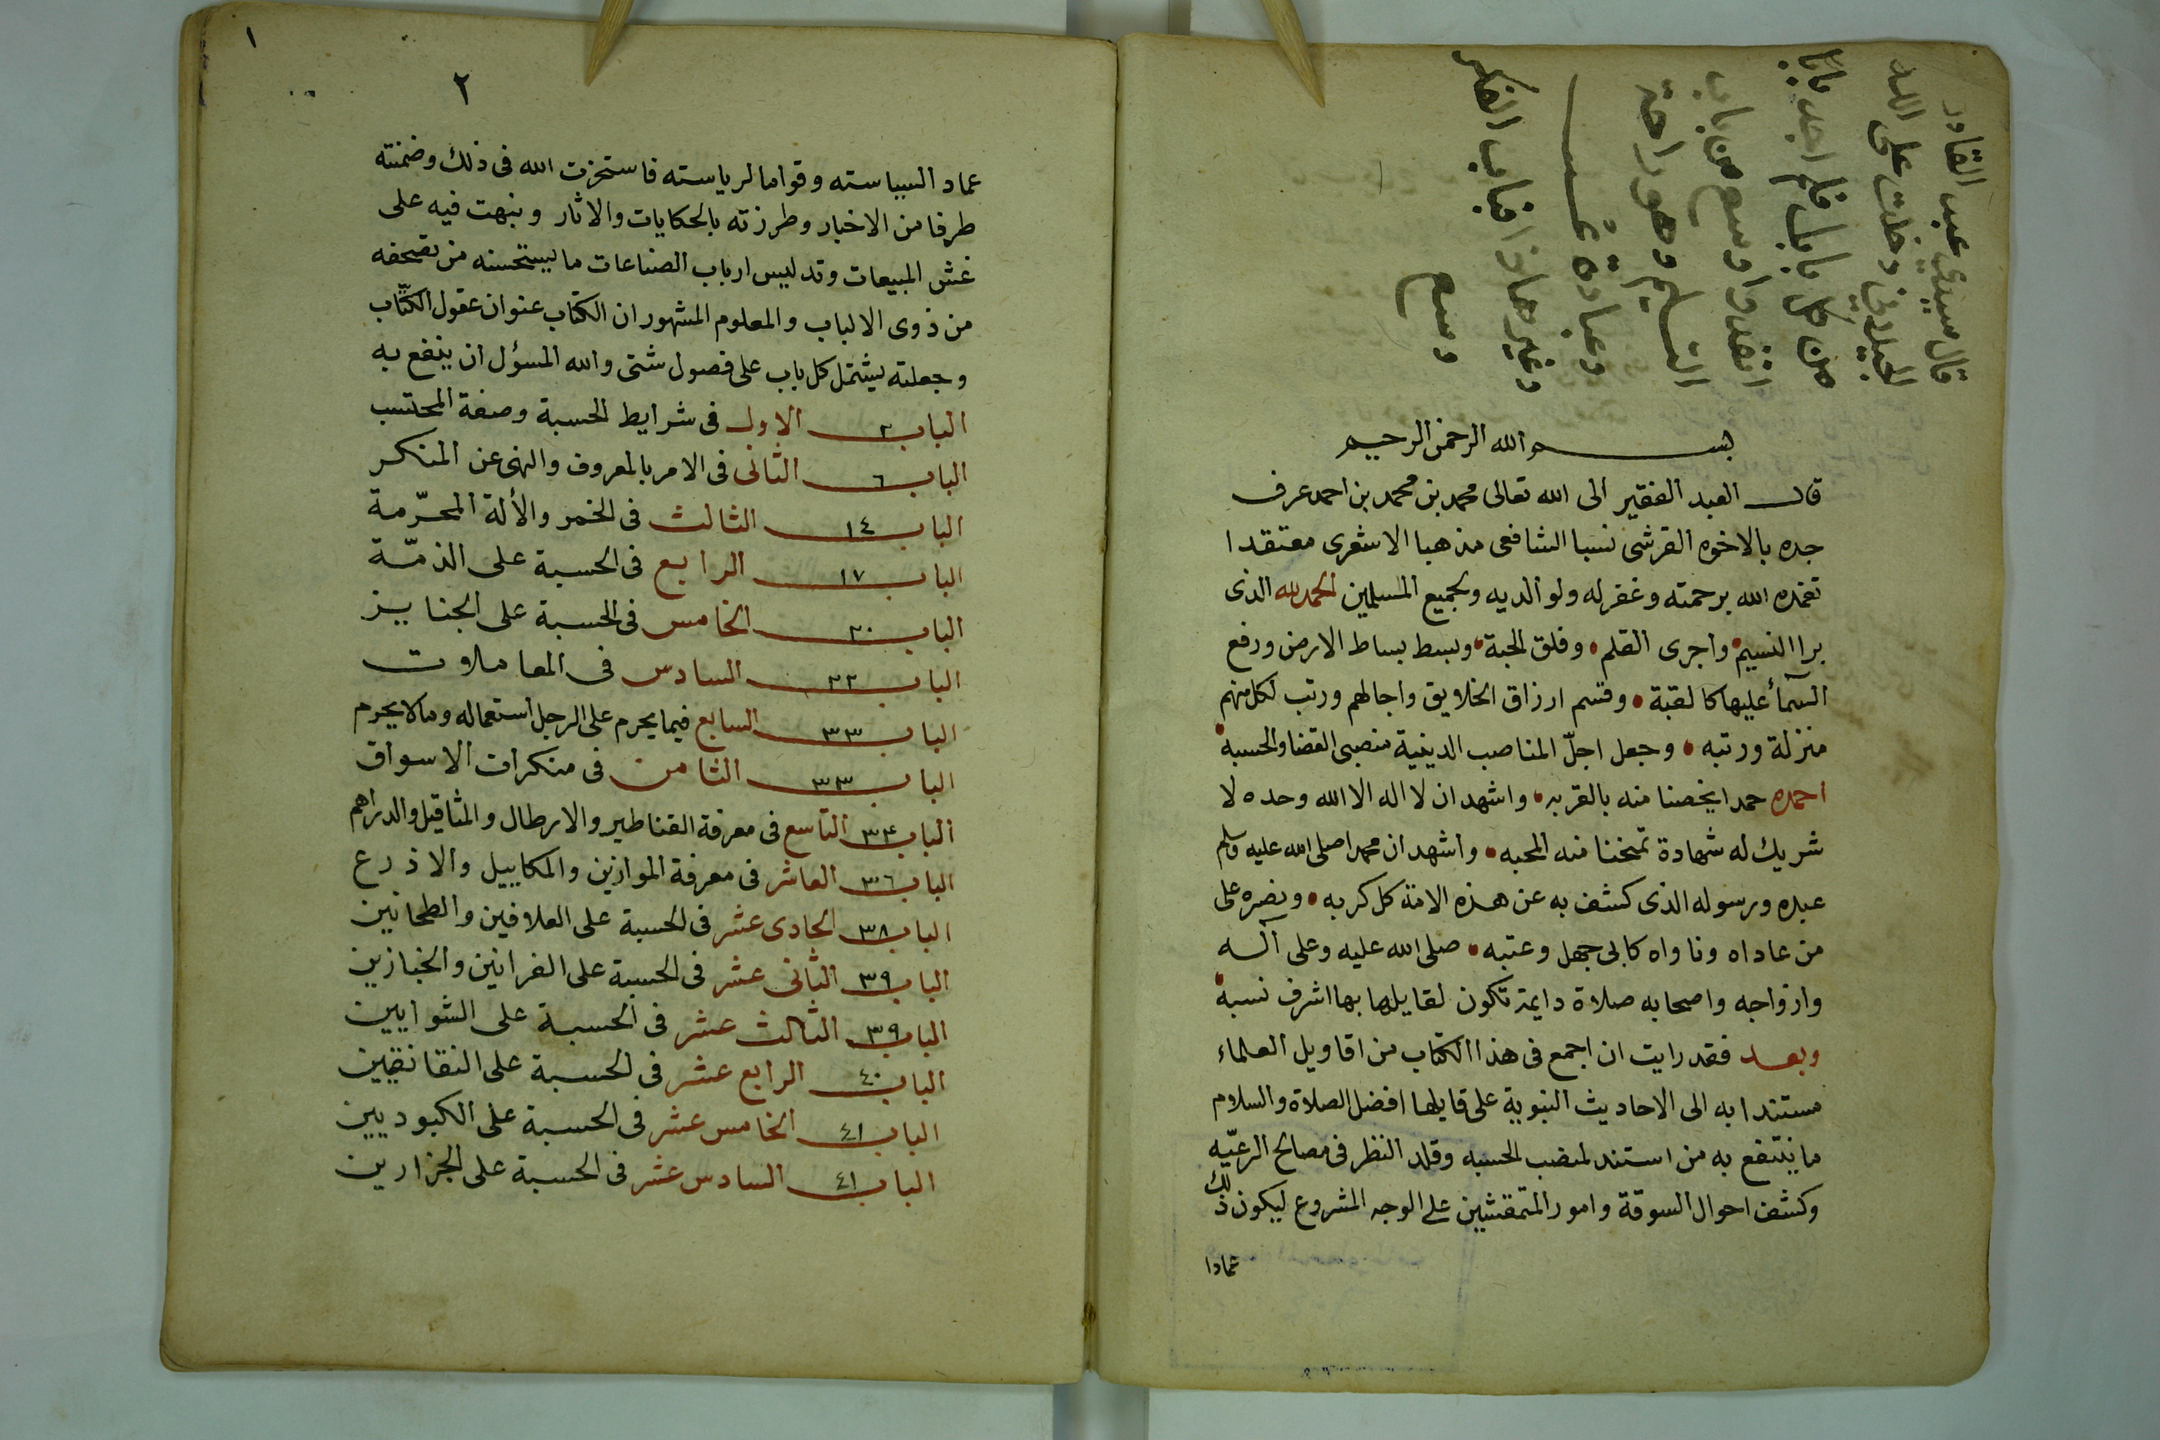 قال سيدي عبد القادر
الجيلاني دخلت على الله
من كل باب فلم اجد بابا
انفد واوسع من باب
التسليم وهو راحة
وعبادة
وغير هاذا فباب الفكر
وسع
بسم الله الرحمن الرحيم
قال العبد الفقير الى الله تعالى محمد بن محمد بن احمد عرف
جده بالاخوه القرشى نسبا الشافعى مذهبا الاشعرى معتقدا
تغمده الله برحمته وغفر له ولوالديه ولجميع المسلمين الحمد لله الذى
برا النسيم واجرى القلم وفلق الحبة وبسط بساط الارض ورفع
السمآأ عليها كالقبة وقسم ارزاق الخلايق واجالهم ورتب لكل منهم
منزلة ورتبه وجعل اجلّ المناصب الدينية منصبى القضا والحسبه
احمده حمدا يخصنا منه بالقربه واشهد ان لا اله الا الله وحده لا
شريك له شهادة تمنحنا منه المحبه واشهد ان محمدا صلى الله عليه وسلم
عبده ورسوله الذى كشف به عن هذه الامة كل كربه ونصره على
من عاداه وناواه كابى جهل وعتبه صلى الله عليه وعلى آله
وازواجه واصحابه صلاة دايمة تكون لقايلها بها اشرف نسبه
وبعد فقد رايت ان اجمع فى هذا الكتاب من اقاويل العلماء
مستندا به الى الاحاديث النبوية على قايلها افضل الصلاة والسلام
ما ينتفع به من استند لمنصب الحسبه وقلد النظر فى مصالح الرعيّه
وكشف احوال السوقة وامور المتمقشين على الوجه المشروع ليكون ذلك
عمادا
١
٢
عماد السياسته وقواما لرياسته فاستخرت الله فى ذلك وضمنته
طرفا من الاخبار وطرزته بالحكايات والاثار ونبهت فيه على
غش المبيعات وتدليس ارباب الصناعات ما يستحسنه من تصحفه
من ذوى الالباب والمعلوم المشهور ان الكتاب عنوان عقول الكتّاب
وجعلته يشتمل كل باب على فصول شتى والله المسؤل ان ينفع به
الباب ٢ الاول فى شرايط الحسبة وصفة المحتسب
الباب ٦ الثانى فى الامر بالمعروف والنهى عن المنكر
الباب ١٤ الثالث فى الخمر والألة المحرّمة
الباب ١٧ الرابع فى الحسبة على الذمّة
الباب ٢٠ الخامس فى الحسبة على الجنايز
الباب ٢٢ السادس فى المعاملات
الباب ٣٣ السابع فيما يحرم على الرجل استعماله وما لا يحرم
الباب ٣٣ الثامن فى منكرات الاسواق
الباب ٣٤ التاسع فى معرفة القناطير والارطال والمثاقيل والدراهم
الباب ٣٦ العاشر فى معرفة الموازين والمكاييل والاذرع
الباب ٣٨ الحادى عشر فى الحسبة على العلافين والطحانين
الباب ٣٩ الثانى عشر فى الحسبة على الفرانين والخبازين
الباب ٣٩ الثالث عشر فى الحسبة على الشوايين
الباب ٤٠ الرابع عشر فى الحسبة على النقانقيين
الباب ٤١ الخامس عشر فى الحسبة على الكبوديين
الباب ٤١ السادس عشر فى الحسبة على الجزارين